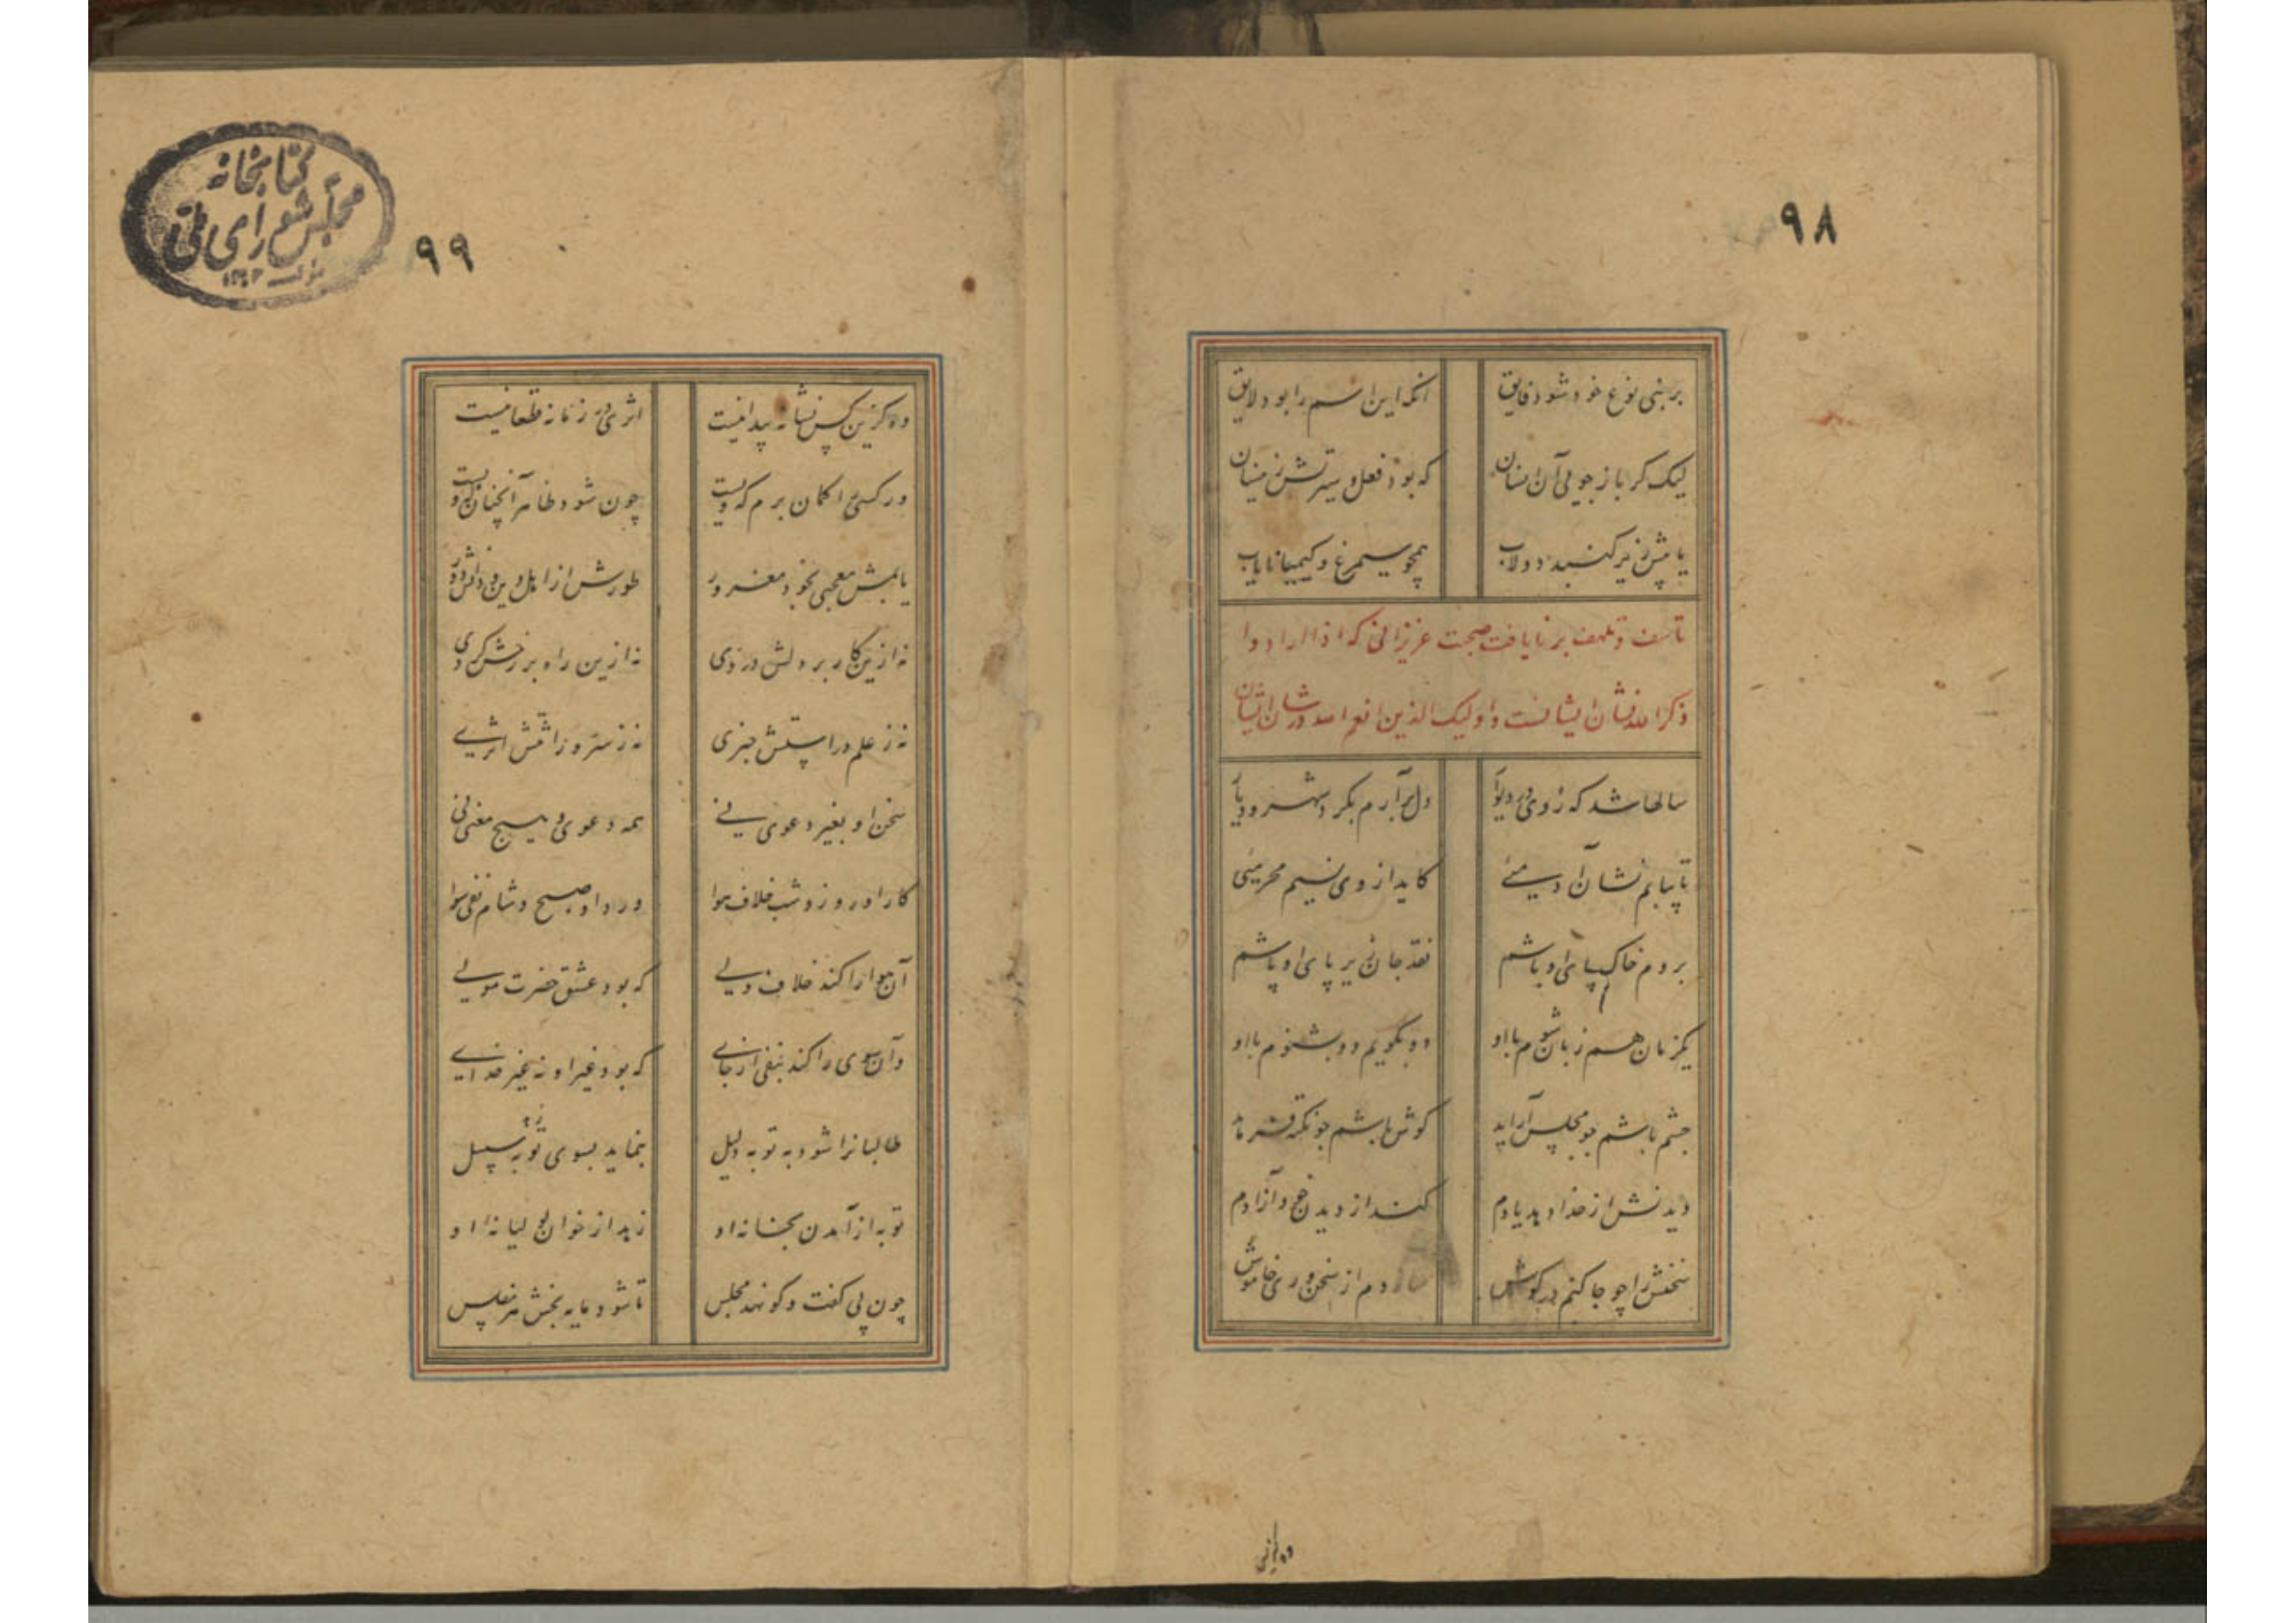 ۹۸
بر بنی نوع خود شود فایق آنکه این اسم را بود لایق
لیک گر باز جویی آن انسان که بود فعل و سیرتش زینسان
یابیش زیر گنبد دولاب همچو سیمرغ و کیمیا نایاب
تأسف و تلهف بر نایافت صحبت عزیزانی که اذا راوا
ذکر الله نشان ایشانست و اولیک الذین انعم الله در شان ایشان
سالها شد که روی در دیوار دل برآرم بگرد شهر و دیار
تا بیابم نشان آدمیئی کاید از وی نسیم محرمیئی
بروم خاک پای او باشم نقد جان زیر پای او پاشم
یکزمان هم زبان شوم با او دو بگویم دو بشنوم با او
چشم باشم چو مجلس آراید گوش باشم چو نکته فرماید
دیدنش از خدا دهد یادم کند از دیدن خود آزادم
سخنش را چو جا کنم در گوش سازدم از سخنوری خاموش
وه کزین
کتابخانه
مجلس شورای ملی
۹۹
وه کزین کس نشانه پیدا نیست اثری در زمانه قطعا نیست
ور کسی را گمان برم که ویست چون شود ظاهر آنچنان که ویست
یابمش معجبی بخود مغرور طورش از اهل دین و دانش دور
نه ازین کار بر دلش دردی نه ازین راه بر رخش گردی
نه ز علم درایتش خبری نه ز سر روایتش اثری
سخن او بغیر دعوی نی همه دعوی و هیچ معنی نی
کار او روز و شب خلاف هوا ورد او صبح و شام نفی سوا
آن هوا را کند خلاف ولی که بود عشق حضرت مولی
وآن سوی را کند بنفی از جای که بود غیر او نه غیر خدای
طالبانرا شود به توبه دلیل بنماید بسوی توبه سبیل
توبه از آمدن بخانه او
چون پی گفت و گو نهد مجلس تا شود مایه بخش هر مفلس